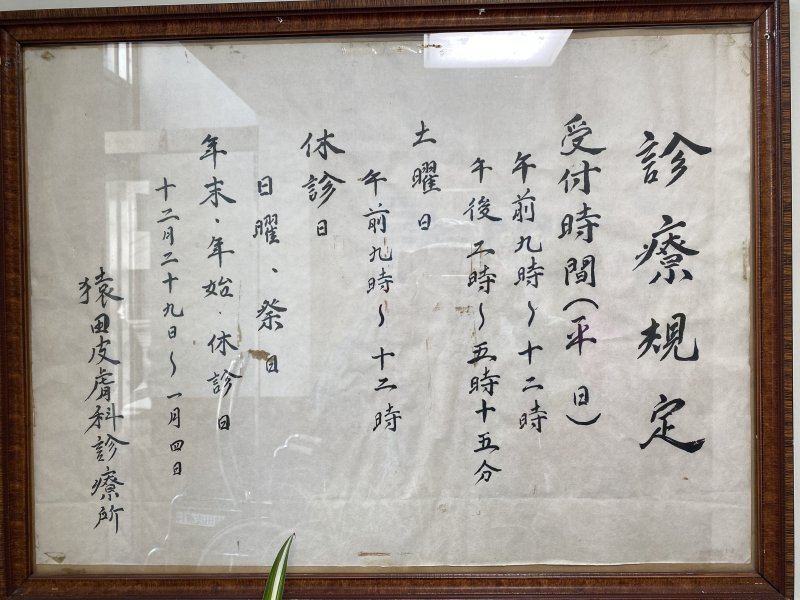 診療規定
受付時間(平日)
午前九時～十二時
午後二時～五時十五分
土曜日
午前九時～十二時
休診日
日曜、祭日
年末・年始・休診日
十二月二十九日～一月四日
猿田皮膚科診療所